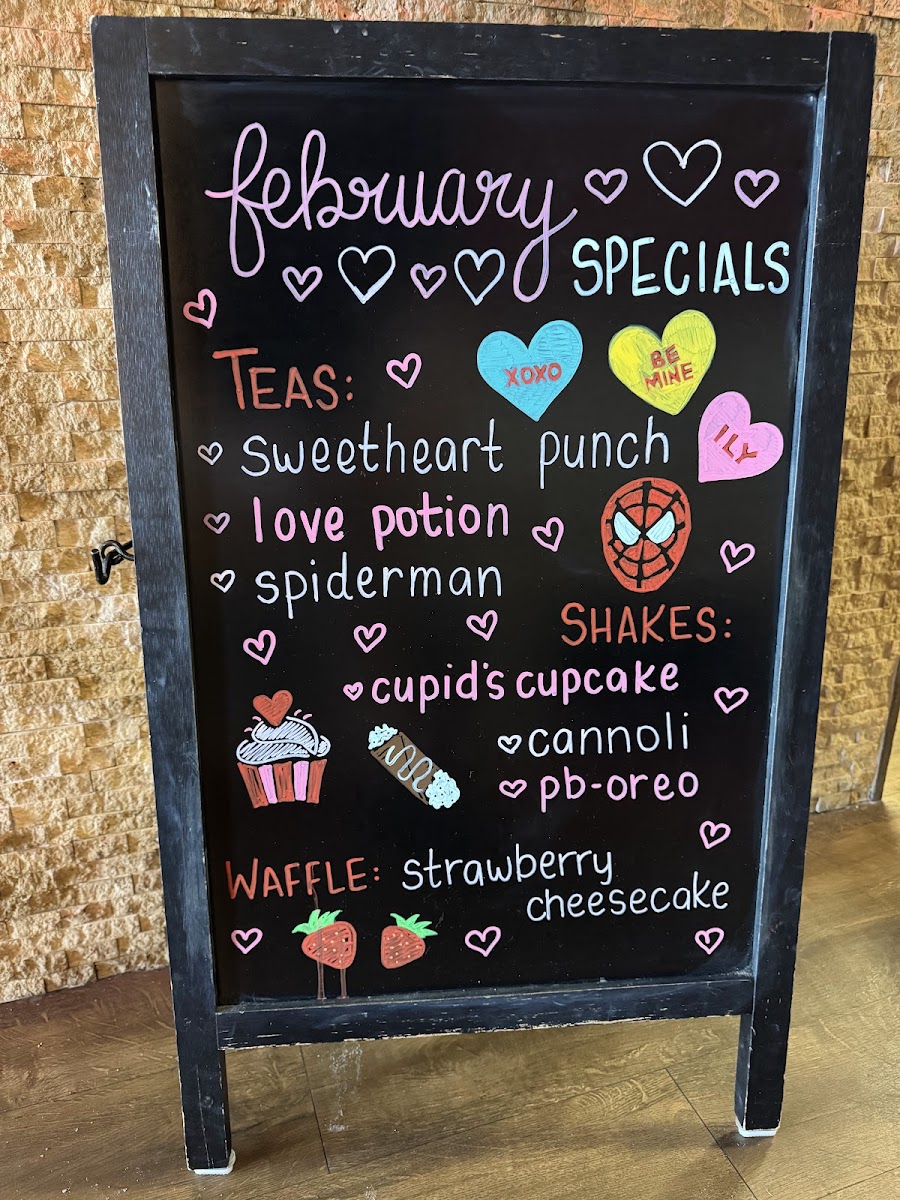 february
SPECIALS
TEAS:
XOXO
BE
MINE
ILY
sweetheart punch
love potion
spiderman
SHAKES:
cupid's cupcake
cannoli
pb-oreo
WAFFLE: strawberry
cheesecake